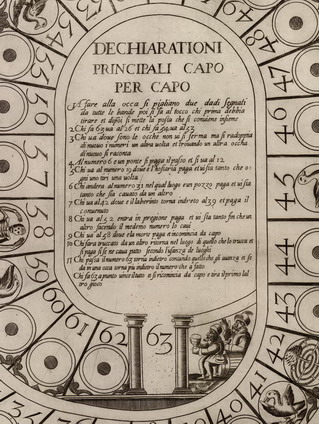 DECHIARATIONI
PRINCIPALI CAPO
PER CAPO
fare alla occa si pigliano due dadi segnati
da tutte le bande poi si fa al tocco chi prima debbia
tirare et dipoi si mette la posta che si conviene insieme
2 Chi fa 63 ua al 26 et chi fa 54 ua al 53
3 Chi ua doue sono le ocche non ui si ferma ma si radoppia
di nuouo i numeri un altra uolta et trouando un altra occha
di nuouo si raconta
4 Al numero 6 e un ponte si paga il passo et si ua al 12
5 Chi ua al numero 19 doue è l'hostaria paga et ui sta tanto che o
gni uno tiri una uolta
6 Chi andera al numero 31 nel qual luogo e un pozzo paga et ui sta
tanto che sia cauato da un altro
7 Chi ua al 42 doue e il laberinto torna indreto al 39 et paga il
conuenuto
8 Chi ua al 52 entra in pregione paga et ui sta tanto fin che un
altro facendo il medemo numero lo caui
9 Chi ua al 58 doue e la morte paga et incomincia da capo
Chi sara truccato da un altro ritorna nel luogo di quello che lo trucca et
paga
secondo l'usanza de luoghi
Chi passa il numero 63 torna indietro contando quello che gli auanza et se
da in una occa torna piu indietro il numero che a fatto
Chi fa 63 a punto
si ricomincia da capo e tira il primo l'al
tro gioco
57
56
55
54
53
52
51
50
49
48
47
46
45
44
43
42
41
40
60
61
62
63
34
35
36
37